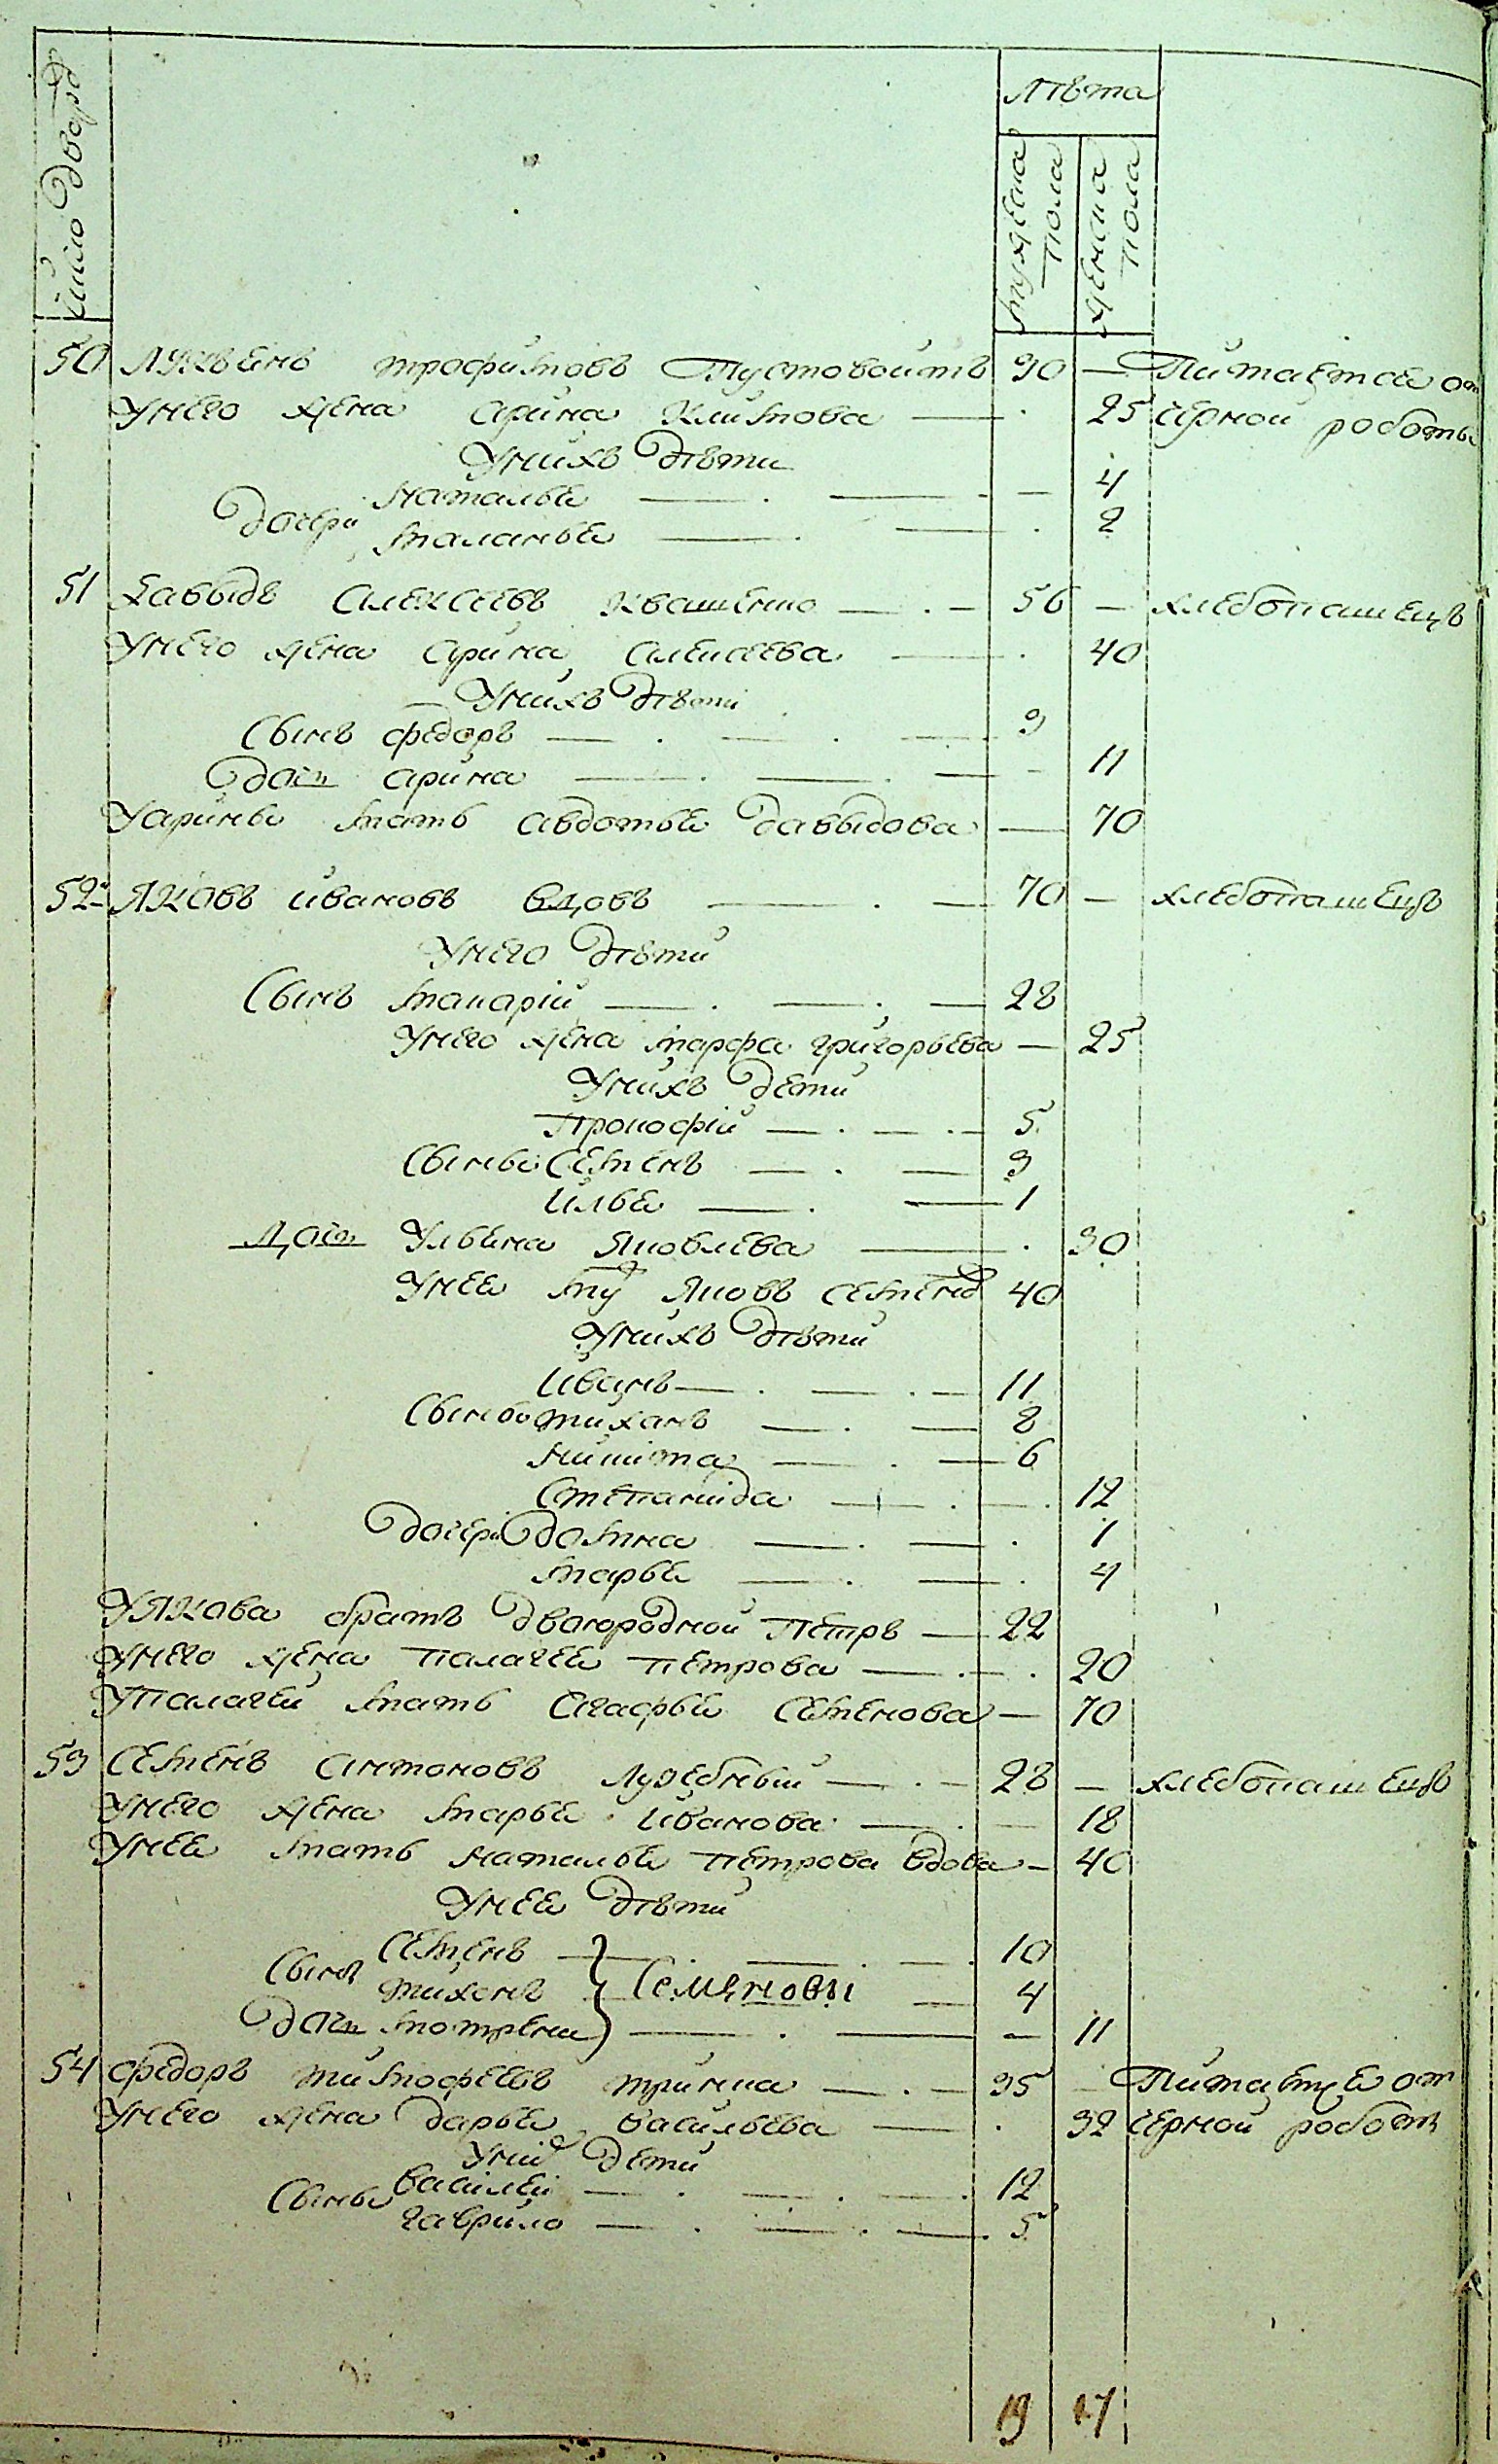 число дворѡ
лѣта
мужеска пола
женска пола
50 Лукьянъ трофимовъ Пустовоитъ 30 — Питается от
Унего жена арина климова — 25 черной роботы
Унихъ дѣти
наталья — — 4
дочери
маланья — 2
51 Давыдъ алексеевъ квашенко — 56 — хлебопашецъ
Унего жена арина алексеева — 40
Унихъ дѣти
Сынъ федоръ — 9
дочь арина — 11
Уарины мать авдотья давыдова — 70
52 Яковъ ивановъ вдовъ — 70 — хлебопашецъ
Унего дѣти
Сынъ макарій — 28
Унего жена марфа григорьева — 25
Унихъ дети
Прокофій — 5
Сыновья Семенъ — 3
илья — 1
Дочь Ульяна Яковлева — 30
Унея му Яковъ семенов 40
Унихъ дѣти
иванъ — 11
Сыновья тиханъ — 8
никита — 6
Степанида — 12
дочери домна — 1
марья — 4
УЯкова братъ двоюродной Петръ — 22
Унего жена палагея петрова — 20
Упалагеи мать агафья Семенова — 70
53 Семенъ антоновъ лужебный — 28 — хлебопашецъ
Унего жена марья иванова — 18
Унея мать наталья петрова вдова — 40
Унея дѣти
Семенъ — 10
Сыны
тихонъ Семеновы — 4
дочь мотрена — 11
54 федоръ тимофеевъ тринка — 35 — Питаетце от
Унего жена дарья васильева — 32 черной робот
Них дети
василей — 12
Сыновья
гаврило — 5
19 17